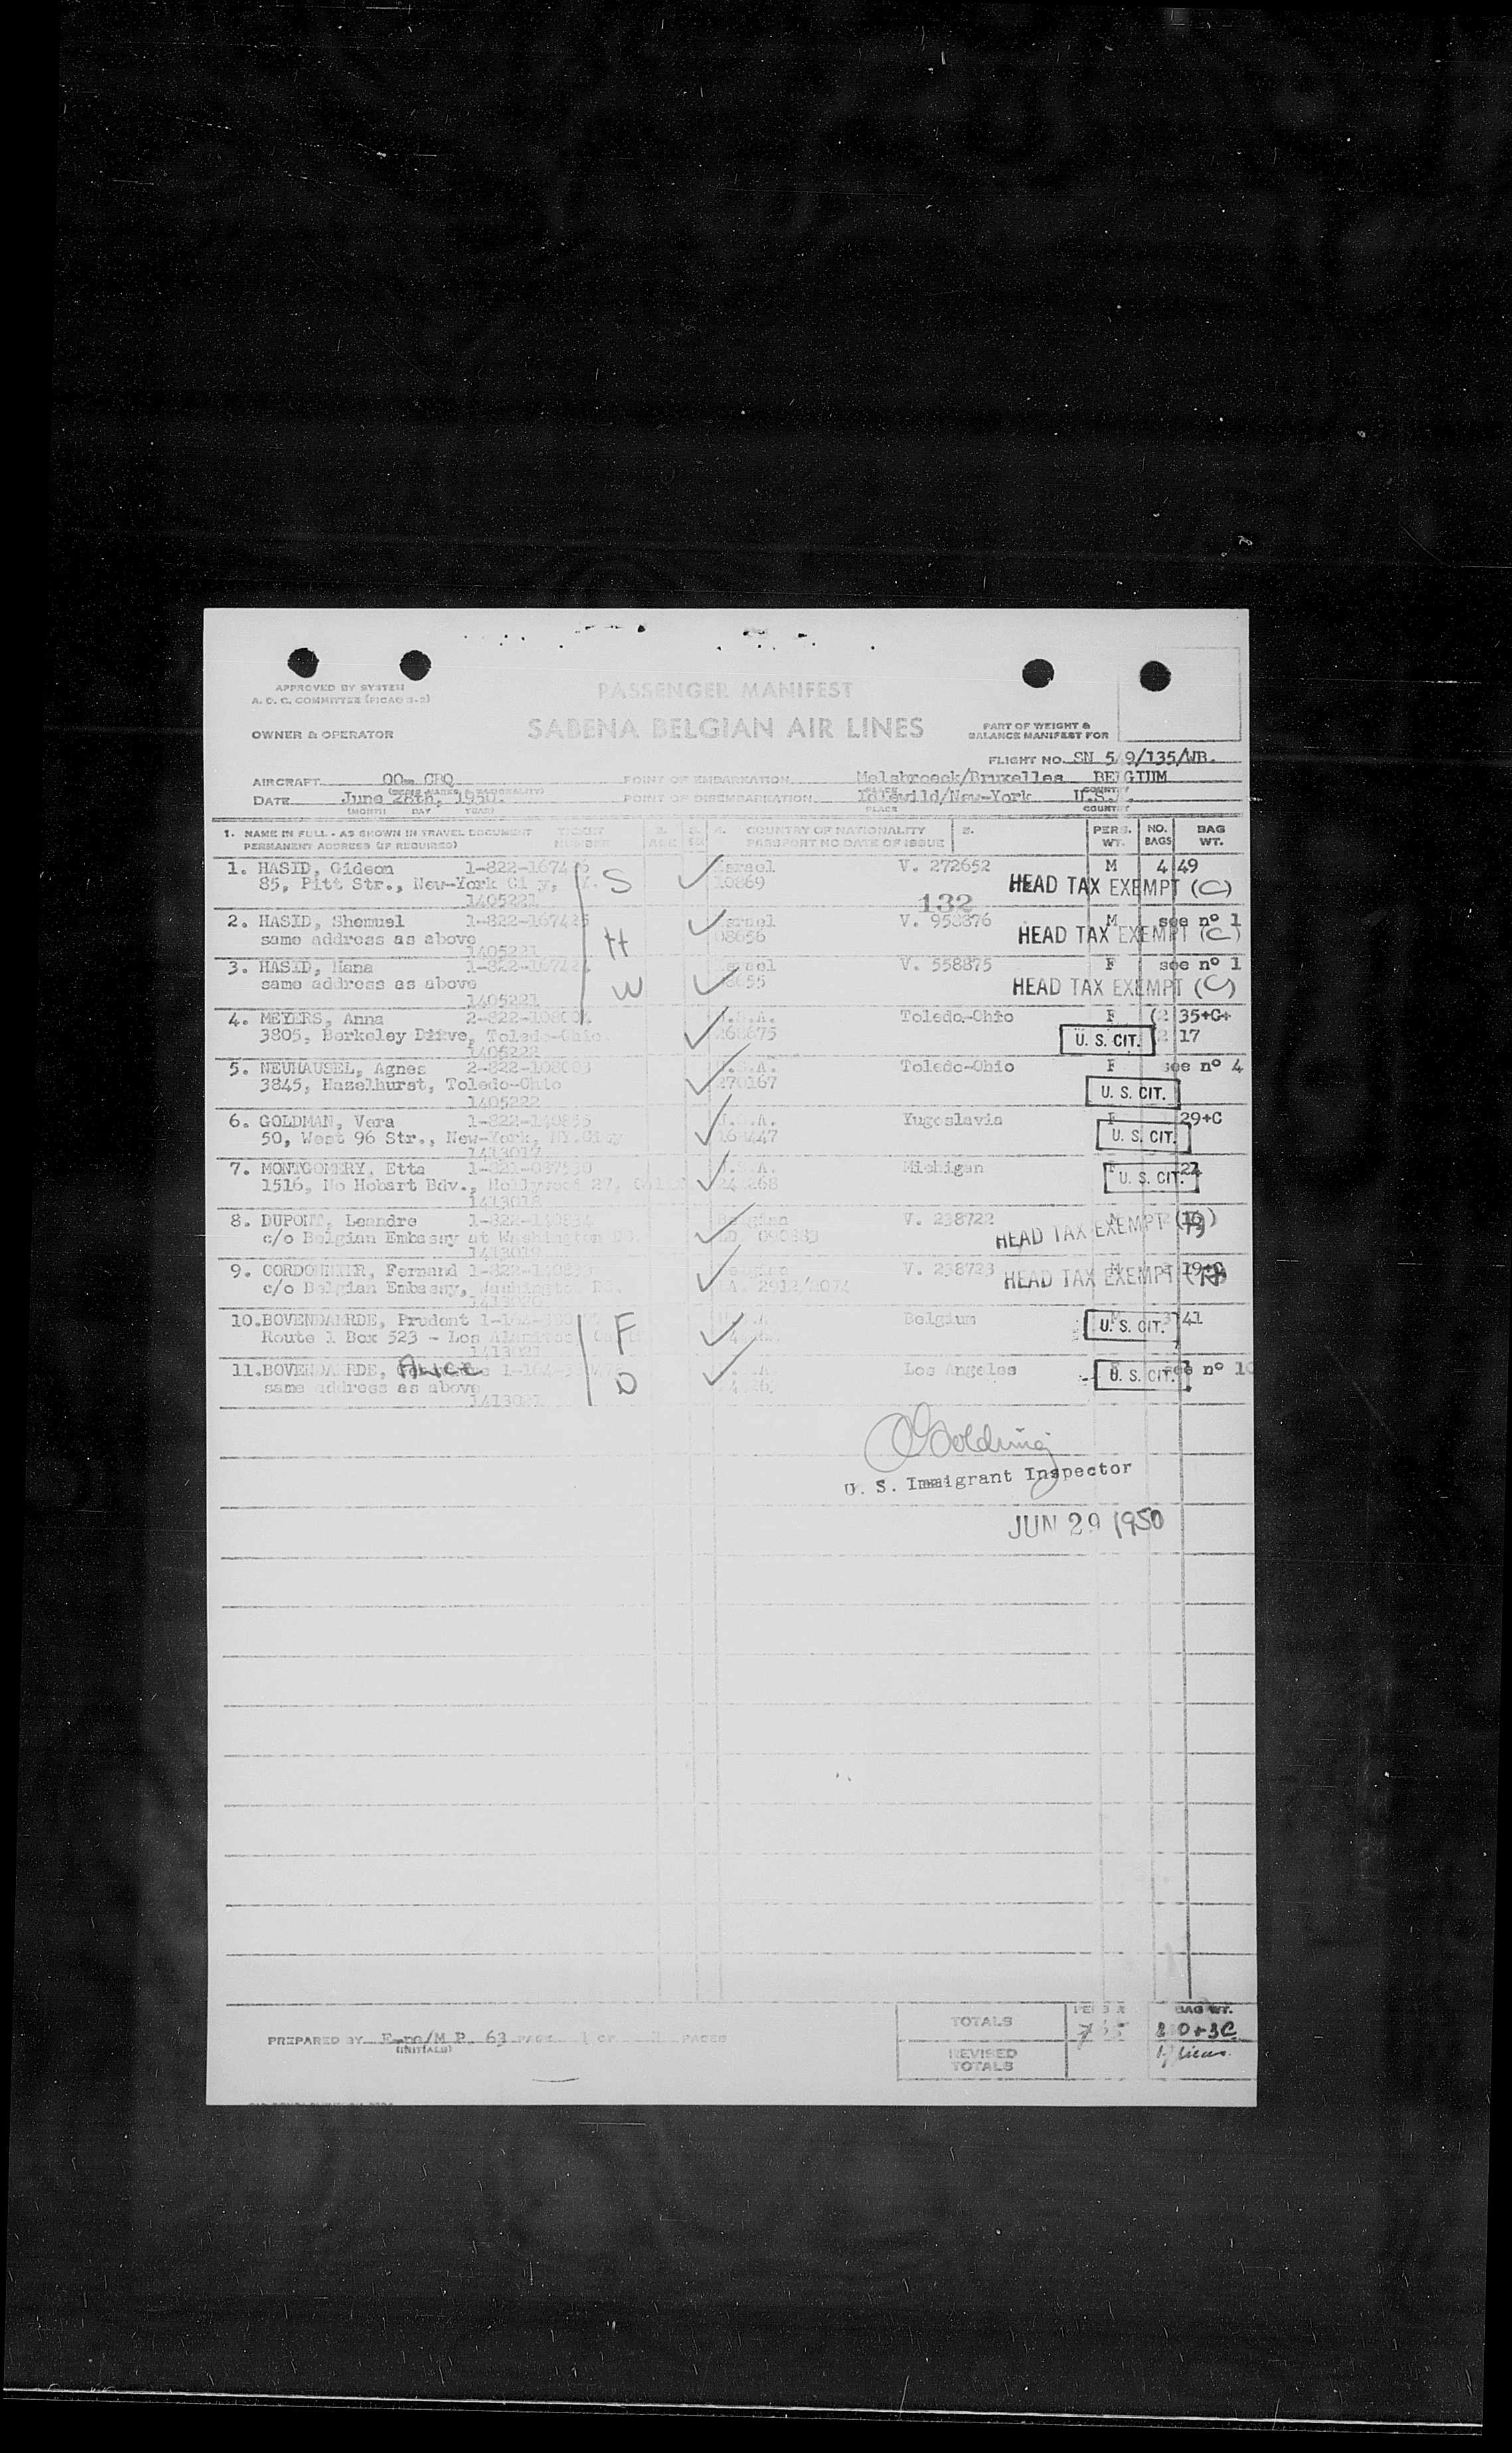 APPROVED BY SYSTEM
A. O. C. COMMITTEE (PICAO 3-2)
PASSENGER MANIFEST
OWNER & OPERATOR
SABENA BELGIAN AIR LINES
PART OF WEIGHT &
BALANCE MANIFEST FOR
FLIGHT NO. SN 5 9/135/WB.
AIRCRAFT OO- CBQ POINT OF EMBARKATION Melsbroeck/Bruxelles BELGIUM
(MARKS & NATIONALITY) PLACE COUNTRY
DATE June 28th, 1950. POINT OF DISEMBARKATION Idlewild/New-York U.S.A.
(MONTH DAY YEAR) PLACE COUNTRY
1. NAME IN FULL - AS SHOWN IN TRAVEL DOCUMENT TICKET 2. 3. 4. COUNTRY OF NATIONALITY 5. PERS. NO. BAG
PERMANENT ADDRESS (IF REQUIRED) NUMBER AGE SEX PASSPORT NO DATE OF ISSUE WT. BAGS WT.
1. HASID, Gideon 1-822-1674 6 Israel V. 272652 M 4 49
85, Pitt Str., New-York City, S 10869 HEAD TAX EXEMPT (C)
1405221
132
2. HASID, Shemuel 1-822-167425 Israel V. 958876 M see nº 1
same address as above H 08656 HEAD TAX EXEMPT (C)
1405221
3. HASID, Hana 1-822-16742 Israel V. 558875 F see nº 1
same address as above W 8655 HEAD TAX EXEMPT (C)
1405221
4. MEYERS, Anna 2-822-108004 U.S.A. Toledo-Ohio F (2 35+C+
3805, Berkeley Drive, Toledo-Ohio. 268675 U. S. CIT. 2 17
1405222
5. NEUHAUSEL, Agnes 2-822-108003 U.S.A. Toledo-Ohio F see nº 4
3845, Hazelhurst, Toledo-Ohio 270167 U. S. CIT.
1405222
6. GOLDMAN, Vera 1-822-140835 U.S.A. Yugoslavia F 29+C
50, West 96 Str., New-York, NY.City 16 447 U. S. CIT.
1413017
7. MONTGOMERY, Etta 1-821-087530 U.S.A. Michigan 24
1516, No Hobart Bdv., Hollywood 27, 24 268 U. S. CIT.
1413018
8. DUPONT, Leandre 1-822-140834 Belgian V. 238722
c/o Belgian Embassy at Washington DC. 090889 HEAD TAX EXEMPT
1413019
9. CORDONNIER, Fernand 1-822-1408 Belgian V. 238723 M 19+C
c/o Belgian Embassy, Washington DC. 2912/ 074 HEAD TAX EXEMPT
10.BOVENDAERDE, Prudent F Belgium 41
Route 1 Box 523 - Los Alamitos U. S. CIT.
1413021
11.BOVENDAERDE, ALICE Los Angeles see nº 10
same address as above D U. S. CIT.
141302
Golding
U. S. Immigrant Inspector
JUN 29 1950
TOTALS BAG WT.
PREPARED BY 63 PAGE 1 OF PAGES
(INITIALS)
REVISED
TOTALS